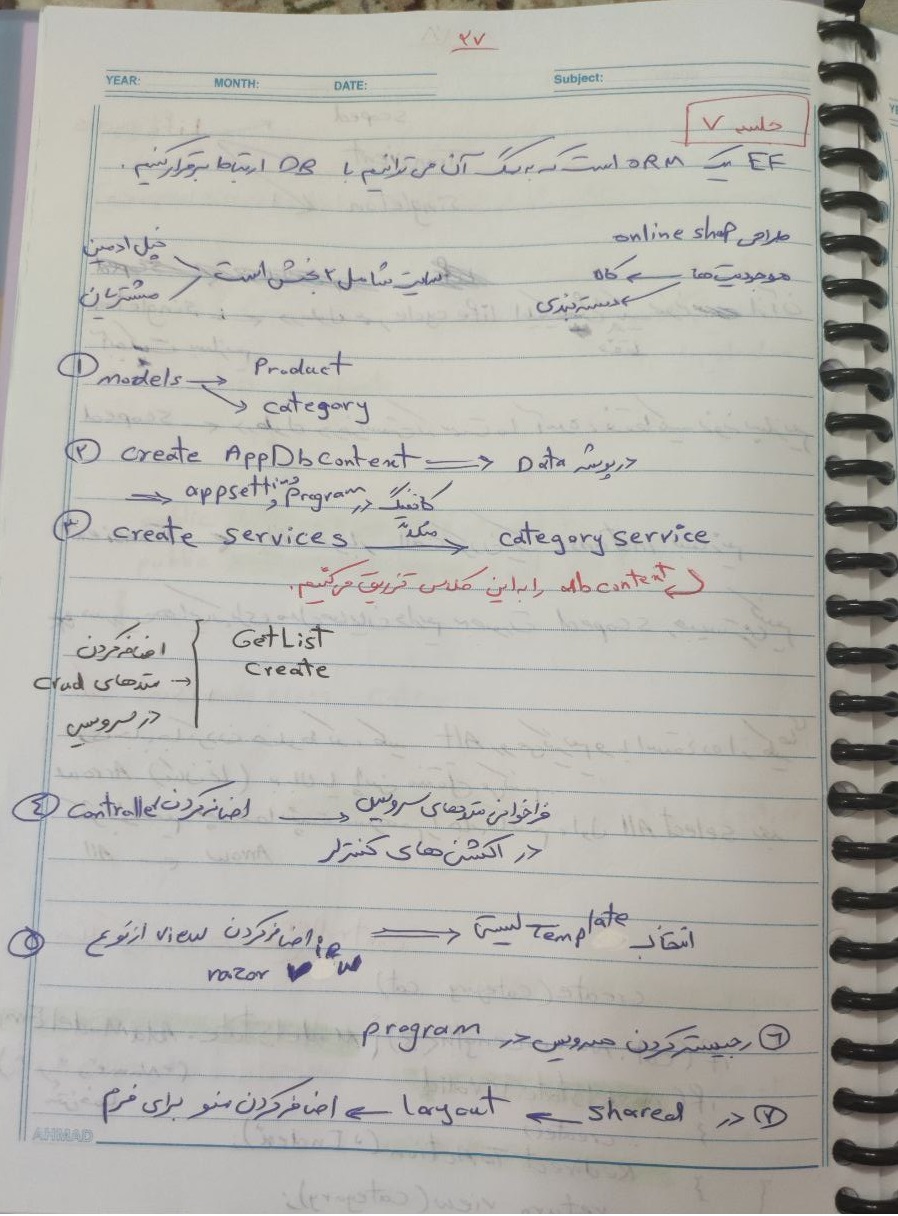 ۲۷
YEAR: MONTH: DATE: Subject:
جلسه ۷
EF یک ORM است که به کمک آن می توانیم با DB ارتباط برقرار کنیم.
طراحی online shop
موجودیت ها → کالا
→ دسته بندی
سایت شامل ۲ بخش است
پنل ادمین
مشتریان
① models → Product
→ category
② create AppDbContext ⇒ Data در پوشه
⇒ appsetting و Program کانفیگ در
③ create services → category service
dbcontext را به این کلاس تزریق می کنیم.
GetList
Create
اضافه کردن
متدهای crud
در سرویس
④ اضافه کردن controller → فراخوانی متدهای سرویس
در اکشن های کنترلر
⑤ اضافه کردن view از نوع ⇒ انتخاب Template لیستی
razor view
⑥ رجیستر کردن سرویس در program
⑦ در shared ← layout ← اضافه کردن منو برای فرم
AHMAD